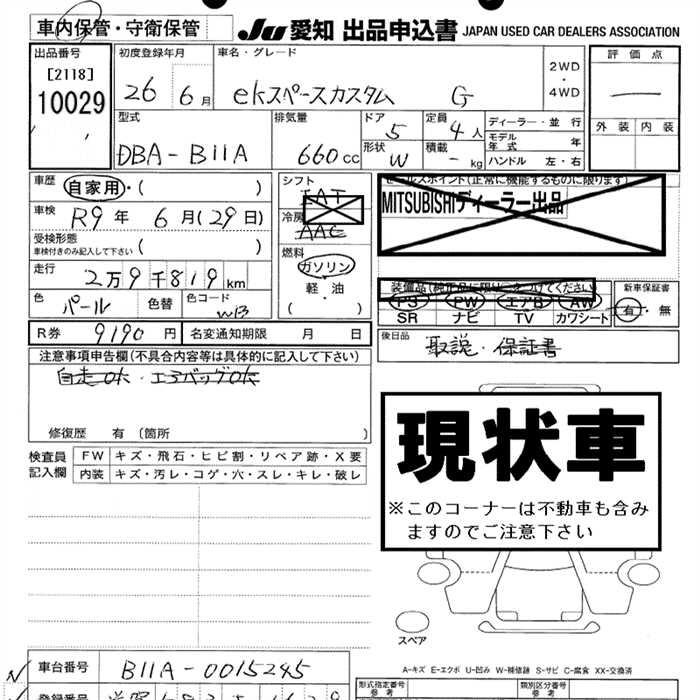 車内保管・守衛保管
JU 愛知 出品申込書 JAPAN USED CAR DEALERS ASSOCIATION
出品番号
[2118]
10029
初度登録年月
26 6月
車名・グレード
ekスペースカスタム G
2WD
・
4WD
評価点
外装 内装
型式
DBA-B11A
排気量
660cc
ドア 5
形状 W
定員 4人
積載 - kg
ディーラー・並行
モデル年式 年
ハンドル 左・右
車歴
自家用・( )
車検
R9年 6月(29日)
受検形態
車検付きのみ記入して下さい ( )
走行
2万9千819km
色 パール 色替 色コード WB
シフト
FAT
冷房
AAC
燃料
ガソリン
軽・油
( )
セールスポイント(正常に機能するものに限ります)
MITSUBISHIディーラー出品
装備品(純正品に限り○をつけてください)
PS PW エアB AW
SR ナビ TV カワシート
新車保証書
有・無
R券 9190円 名変通知期限 月 日
後日品
取説・保証書
注意事項申告欄(不具合内容等は具体的に記入して下さい)
自走ok・エアバッグok
修復歴 有〔箇所 〕
検査員記入欄
FW キズ・飛石・ヒビ割・リペア跡・X要
内装 キズ・汚レ・コゲ・穴・スレ・キレ・破レ
現状車
※このコーナーは不動車も含み
ますのでご注意下さい
スペア
A-キズ E-エクボ U-凹み W-補修跡 S-サビ C-腐食 XX-交換済
車台番号 B11A-0015245
型式指定番号
参考
類別区分番号
参考
登録番号